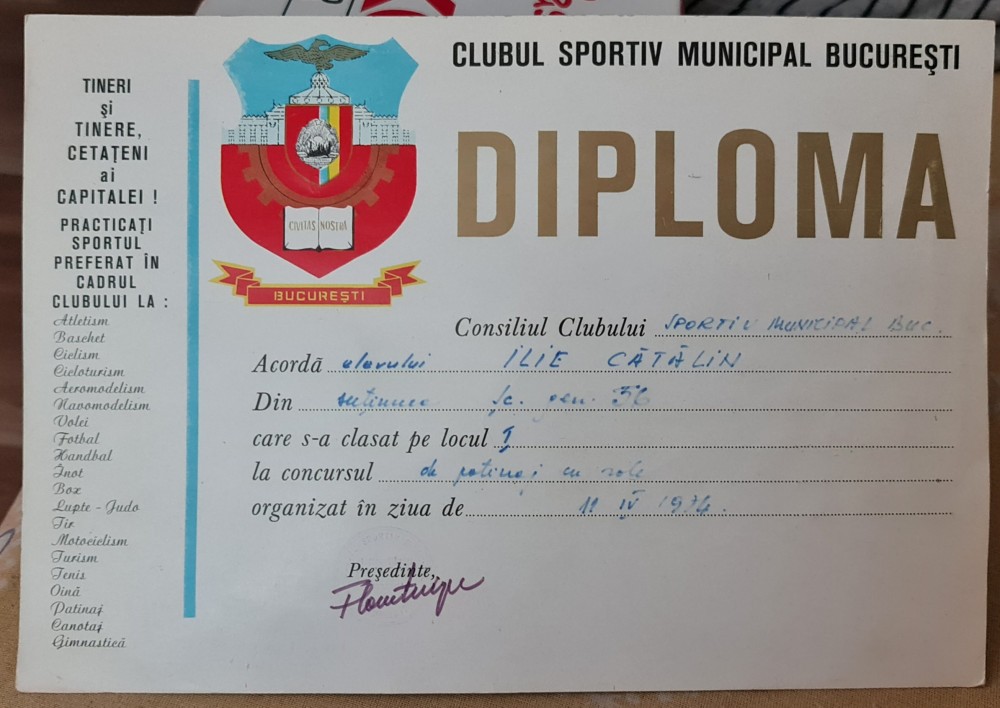 CLUBUL SPORTIV MUNICIPAL BUCUREȘTI
DIPLOMA
TINERI
și
TINERE,
CETAȚENI
ai
CAPITALEI !
PRACTICAȚI
SPORTUL
PREFERAT ÎN
CADRUL
CLUBULUI LA :
Atletism
Baschet
Ciclism
Cicloturism
Aeromodelism
Navomodelism
Volei
Fotbal
Handbal
Înot
Box
Lupte - Judo
Tir
Motociclism
Turism
Tenis
Oină
Patinaj
Canotaj
Gimnastică
CIVITAS NOSTRA
BUCUREȘTI
Consiliul Clubului SPORTIV MUNICIPAL BUC.
Acordă elevului ILIE CĂTĂLIN
Din șc. gen. 56
care s-a clasat pe locul I
la concursul de patinaj cu role
organizat în ziua de 11 IV 1974.
Președinte,